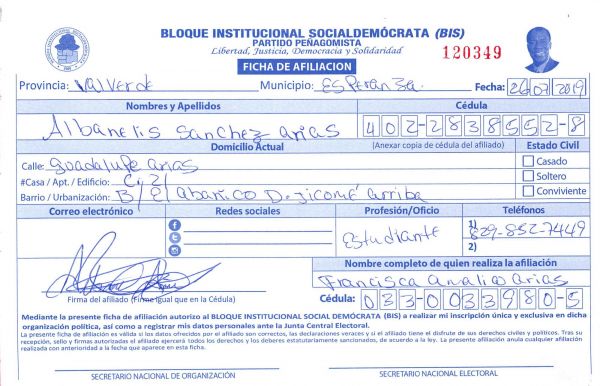 BLOQUE INSTITUCIONAL SOCIALDEMÓCRATA (BIS)
PARTIDO PEÑAGOMISTA
Libertad, Justicia, Democracia y Solidaridad
120349
FICHA DE AFILIACION
Provincia: Valverde Municipio: Esperanza. Fecha: 26/07/2019
Nombres y Apellidos Cédula
Albanelis Sanchez arias 402-2838552-8
Domicilio Actual (Anexar copia de cédula del afiliado) Estado Civil
Calle: guadalupe arias Casado
#Casa / Apt. / Edificio: Soltero
Barrio / Urbanización: B/ El abanico D. Jicomé arriba Conviviente
Correo electrónico Redes sociales Profesión/Oficio Teléfonos
Estudiante 1) 829-852-7449
2)
Nombre completo de quien realiza la afiliación
Francisca Arias
Firma del afiliado (Firme igual que en la Cédula) Cédula: 033-0033980-5
Mediante la presente ficha de afiliación autorizo al BLOQUE INSTITUCIONAL SOCIAL DEMÓCRATA (BIS) a realizar mi inscripción única y exclusiva en dicha
organización política, así como a registrar mis datos personales ante la Junta Central Electoral.
La presente ficha de afiliación es válida si los datos ofrecidos por el afiliado son correctos, las declaraciones veraces y si el afiliado tiene el disfrute de sus derechos civiles y políticos. Tras su
recepción, sello y firmas autorizadas el afiliado ejercerá todos los derechos y los deberes estatutariamente sancionados, de acuerdo a la ley. La presente afiliación anula cualquier afiliación
realizada con anterioridad a la fecha que aparece en esta ficha.
SECRETARIO NACIONAL DE ORGANIZACIÓN SECRETARIO NACIONAL ELECTORAL